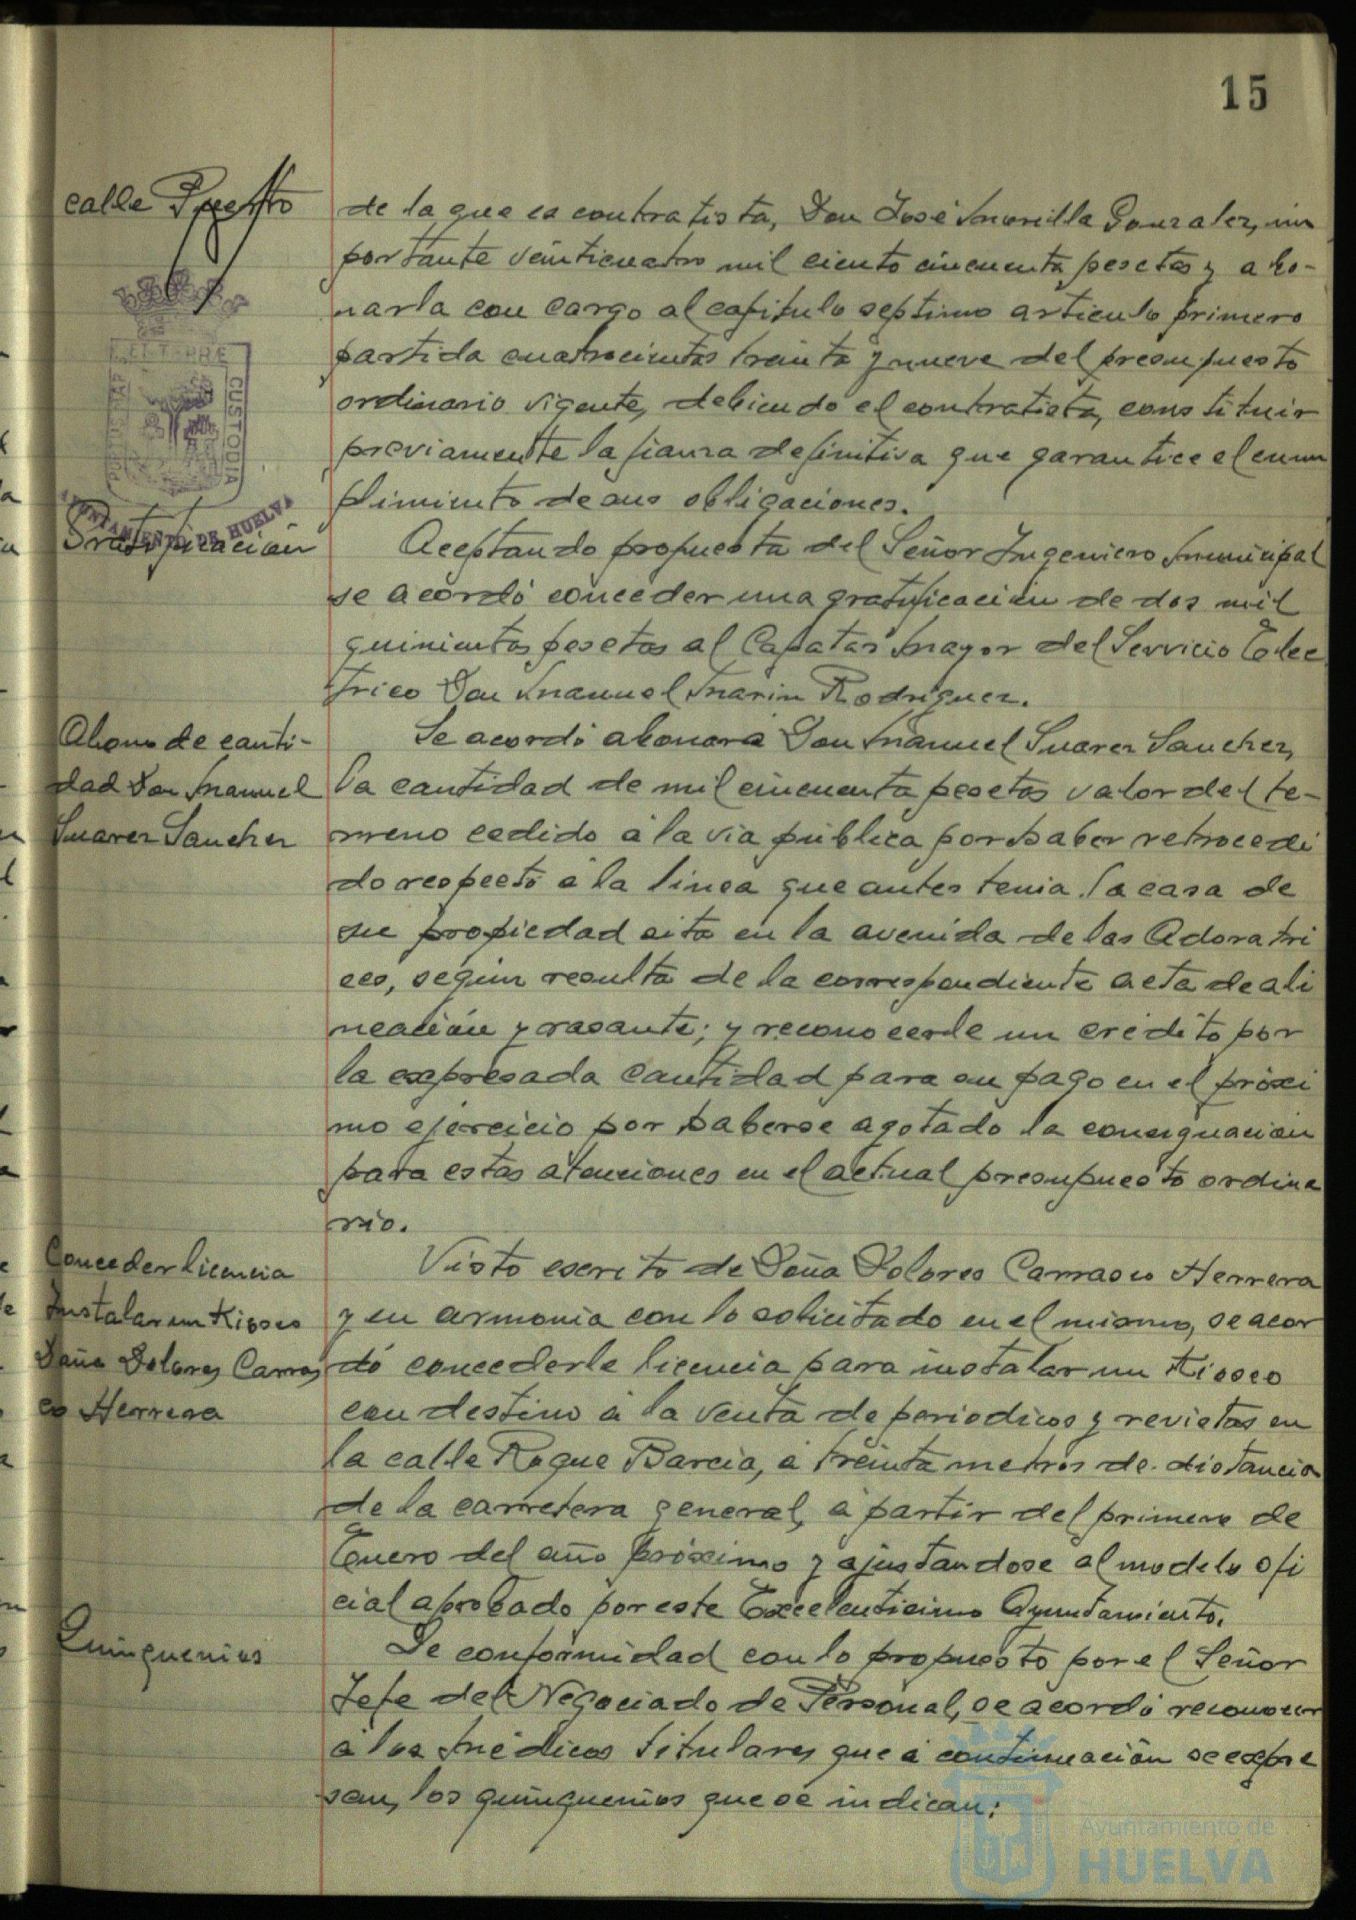 15
calle Puerto
de la que es contratista, Don José Morilla Gonzalez, im
portante veinticuatro mil ciento cincuenta pesetas y abo-
narla con cargo al capitulo septimo articulo primero
partida cuatrocientas treinta y nueve del presupuesto
ordinario vigente, debiendo el contratista, constituir
previamente la fianza definitiva que garantice el cum
plimiento de sus obligaciones.
PORTUS MARIS ET TERRE CUSTODIA
AYUNTAMIENTO DE HUELVA
Gratificación
Aceptando propuesta del Señor Ingeniero Municipal
se acordó conceder una gratificación de dos mil
quinientas pesetas al Capataz Mayor del Servicio Elec
trico Don Manuel Marin Rodriguez.
Abono de canti-
dad Don Manuel
Suarez Sanchez
Se acordó abonar a Don Manuel Suarez Sanchez,
la cantidad de mil cincuenta pesetas valor del te-
rreno cedido á la via pública por haber retrocedi
do respecto á la linea que antes tenia la casa de
su propiedad sita en la avenida de las Adoratri
ces, según resulta de la correspondiente acta de ali
neación y rasante; y reconocerle un crédito por
la expresada cantidad para su pago en el próxi
mo ejercicio por haberse agotado la consignación
para estas atenciones en el actual presupuesto ordina
rio.
Conceder licencia
Instalar un Kiosco
Doña Dolores Carras
co Herrera
Visto escrito de Doña Dolores Carrasco Herrera
y en armonia con lo solicitado en el mismo, se acor
dó concederle licencia para instalar un Kiosco
con destino á la venta de periodicos y revistas en
la calle Roque Barcia, á treinta metros de distancia
de la carretera general, á partir del primero de
Enero del año próximo y ajustandose al modelo ofi
cial aprobado por este Excelentisimo Ayuntamiento.
Quinquenios
De conformidad con lo propuesto por el Señor
Jefe del Negociado de Personal, se acordó reconocer
á los Médicos titulares que á continuación se expre
san, los quinquenios que se indican:
Ayuntamiento de
HUELVA